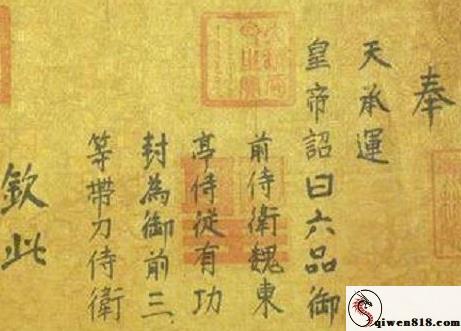 奉
天承運
皇帝詔曰六品御
前侍衛魏東
亭侍從有功
封為御前三
等帶刀侍衛
欽此
qiwen818.com